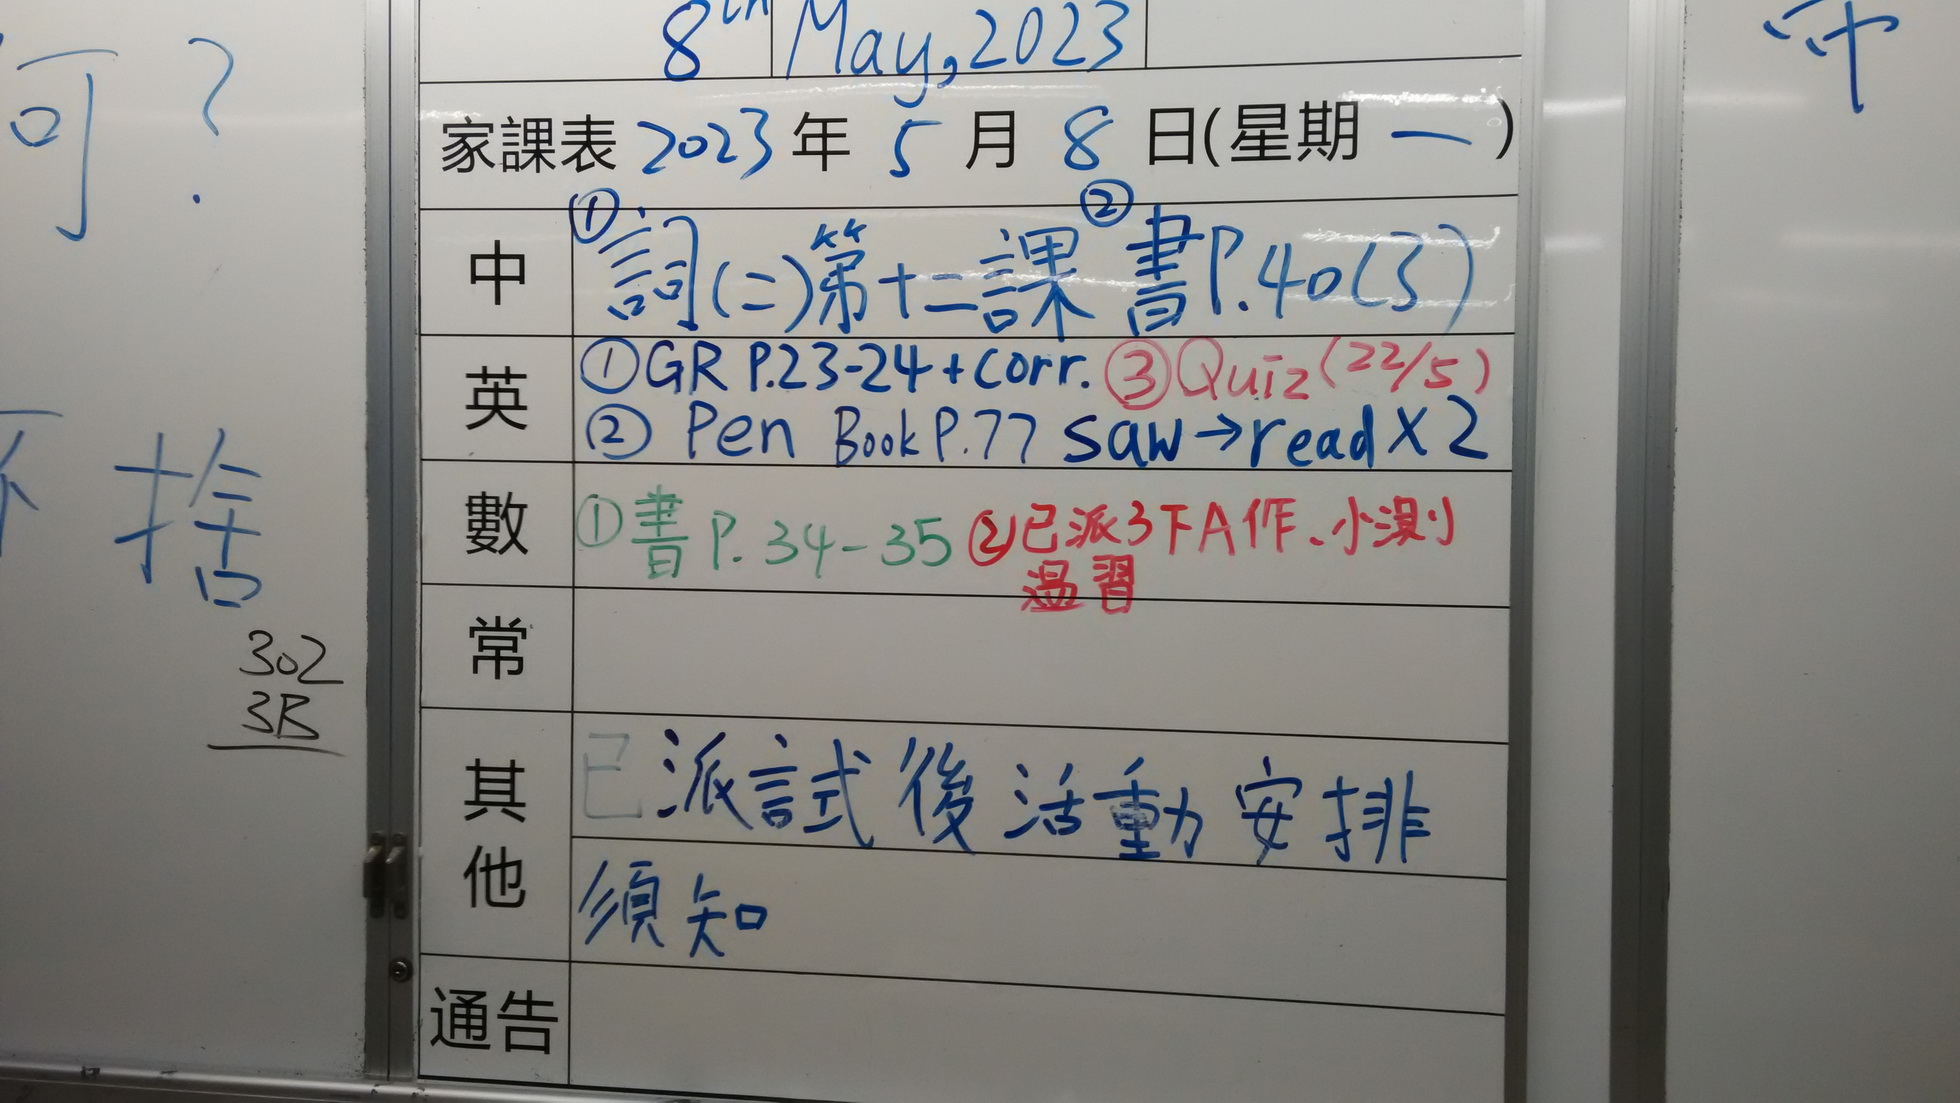 8th May, 2023
家課表 2023 年 5 月 8 日(星期一)
中 ①詞(二)第十二課 ②書P.40(3)
英 ①GR P.23-24+corr. ③Quiz(22/5)
②Pen Book P.77 saw→read X2
數 ①書P.34-35 ②已派3下A作、小測
溫習
常
其他 已派試後活動安排
須知
通告
何?
捨
302
3B